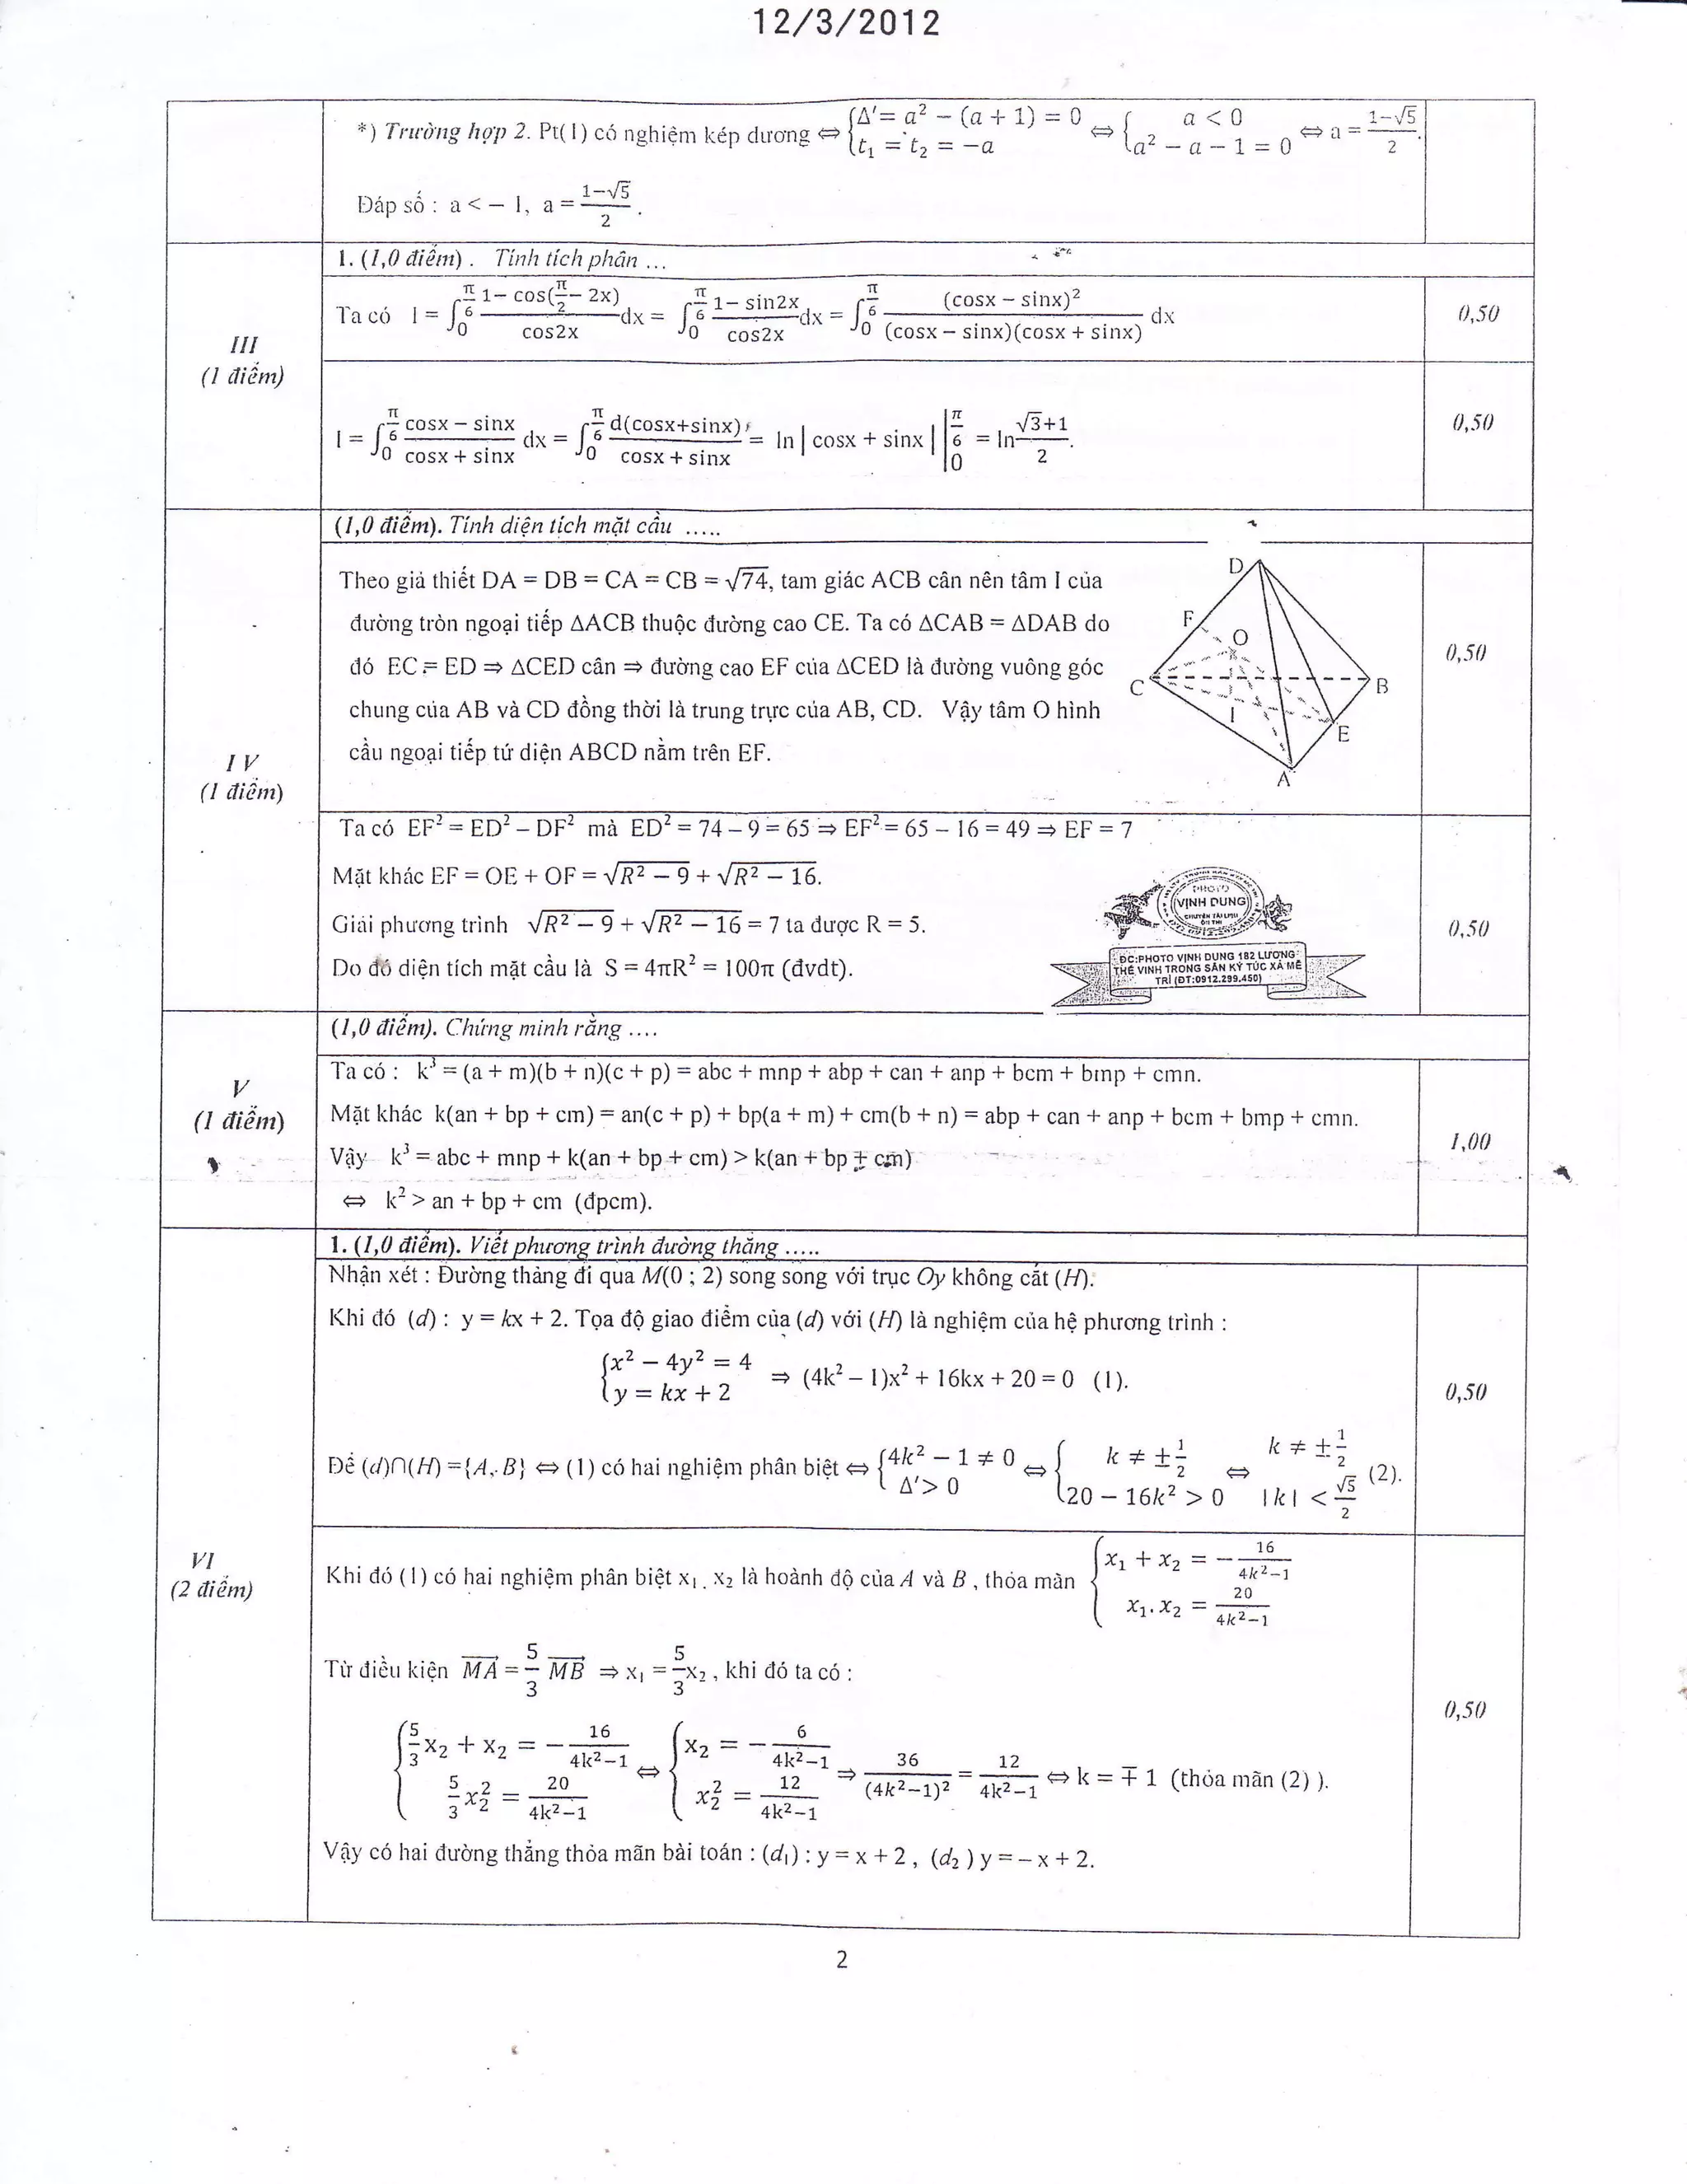 12/3/2012
*) Trường hợp 2. Pt(1) có nghiệm kép dương ⇔ {Δ'= a² − (a + 1) = 0; t₁ = t₂ = −a ⇔ {a < 0; a² − a − 1 = 0 ⇔ a = (1−√5)/2.
Đáp số : a < − 1, a = (1−√5)/2 .
III
(1 điểm)
1. (1,0 điểm) . Tính tích phân ...
Ta có I = ∫₀^(π/6) (1− cos(π/2− 2x))/cos2x dx = ∫₀^(π/6) (1− sin2x)/cos2x dx = ∫₀^(π/6) (cosx − sinx)²/((cosx − sinx)(cosx + sinx)) dx
0,50
I = ∫₀^(π/6) (cosx − sinx)/(cosx + sinx) dx = ∫₀^(π/6) d(cosx+sinx)/(cosx + sinx) = ln | cosx + sinx | |₀^(π/6) = ln (√3+1)/2.
0,50
IV
(1 điểm)
(1,0 điểm). Tính diện tích mặt cầu .....
Theo giả thiết DA = DB = CA = CB = √74, tam giác ACB cân nên tâm I của
đường tròn ngoại tiếp ΔACB thuộc đường cao CE. Ta có ΔCAB = ΔDAB do
đó EC = ED ⇒ ΔCED cân ⇒ đường cao EF của ΔCED là đường vuông góc
chung của AB và CD đồng thời là trung trực của AB, CD. Vậy tâm O hình
cầu ngoại tiếp tứ diện ABCD nằm trên EF.
D
F
O
C
B
I
E
A
0,50
Ta có EF² = ED² – DF² mà ED² = 74 – 9 = 65 ⇒ EF² = 65 – 16 = 49 ⇒ EF = 7
Mặt khác EF = OE + OF = √(R² − 9) + √(R² − 16).
Giải phương trình √(R² − 9) + √(R² − 16) = 7 ta được R = 5.
Do đó diện tích mặt cầu là S = 4πR² = 100π (đvdt).
0,50
PHOTO
VỊNH DUNG
CHUYÊN TÀI LIỆU
ÔN THI
ĐC:PHOTO VỊNH DUNG 182 LƯƠNG
THẾ VINH TRONG SÂN KÝ TÚC XÁ MỄ
TRÌ (ĐT:0912.299.450)
V
(1 điểm)
(1,0 điểm). Chứng minh rằng ....
Ta có : k³ = (a + m)(b + n)(c + p) = abc + mnp + abp + can + anp + bcm + bmp + cmn.
Mặt khác k(an + bp + cm) = an(c + p) + bp(a + m) + cm(b + n) = abp + can + anp + bcm + bmp + cmn.
Vậy k³ = abc + mnp + k(an + bp + cm) > k(an + bp + cm)
⇔ k² > an + bp + cm (đpcm).
1,00
VI
(2 điểm)
1. (1,0 điểm). Viết phương trình đường thẳng .....
Nhận xét : Đường thẳng đi qua M(0 ; 2) song song với trục Oy không cắt (H).
Khi đó (d) : y = kx + 2. Tọa độ giao điểm của (d) với (H) là nghiệm của hệ phương trình :
{x² − 4y² = 4; y = kx + 2 ⇒ (4k² – 1)x² + 16kx + 20 = 0 (1).
Để (d)∩(H) ={A, B} ⇔ (1) có hai nghiệm phân biệt ⇔ {4k² − 1 ≠ 0; Δ'> 0 ⇔ {k ≠ ±1/2; 20 − 16k² > 0 ⇔ k ≠ ±1/2; |k| < √5/2 (2).
0,50
Khi đó (1) có hai nghiệm phân biệt x₁ , x₂ là hoành độ của A và B , thỏa mãn {x₁ + x₂ = −16/(4k²−1); x₁.x₂ = 20/(4k²−1)
Từ điều kiện MA = 5/3 MB ⇒ x₁ = 5/3 x₂ , khi đó ta có :
{5/3 x₂ + x₂ = −16/(4k²−1); 5/3 x₂² = 20/(4k²−1) ⇔ {x₂ = −6/(4k²−1); x₂² = 12/(4k²−1) ⇒ 36/(4k²−1)² = 12/(4k²−1) ⇔ k = ∓ 1 (thỏa mãn (2) ).
Vậy có hai đường thẳng thỏa mãn bài toán : (d₁) : y = x + 2 , (d₂ ) y = – x + 2.
0,50
2